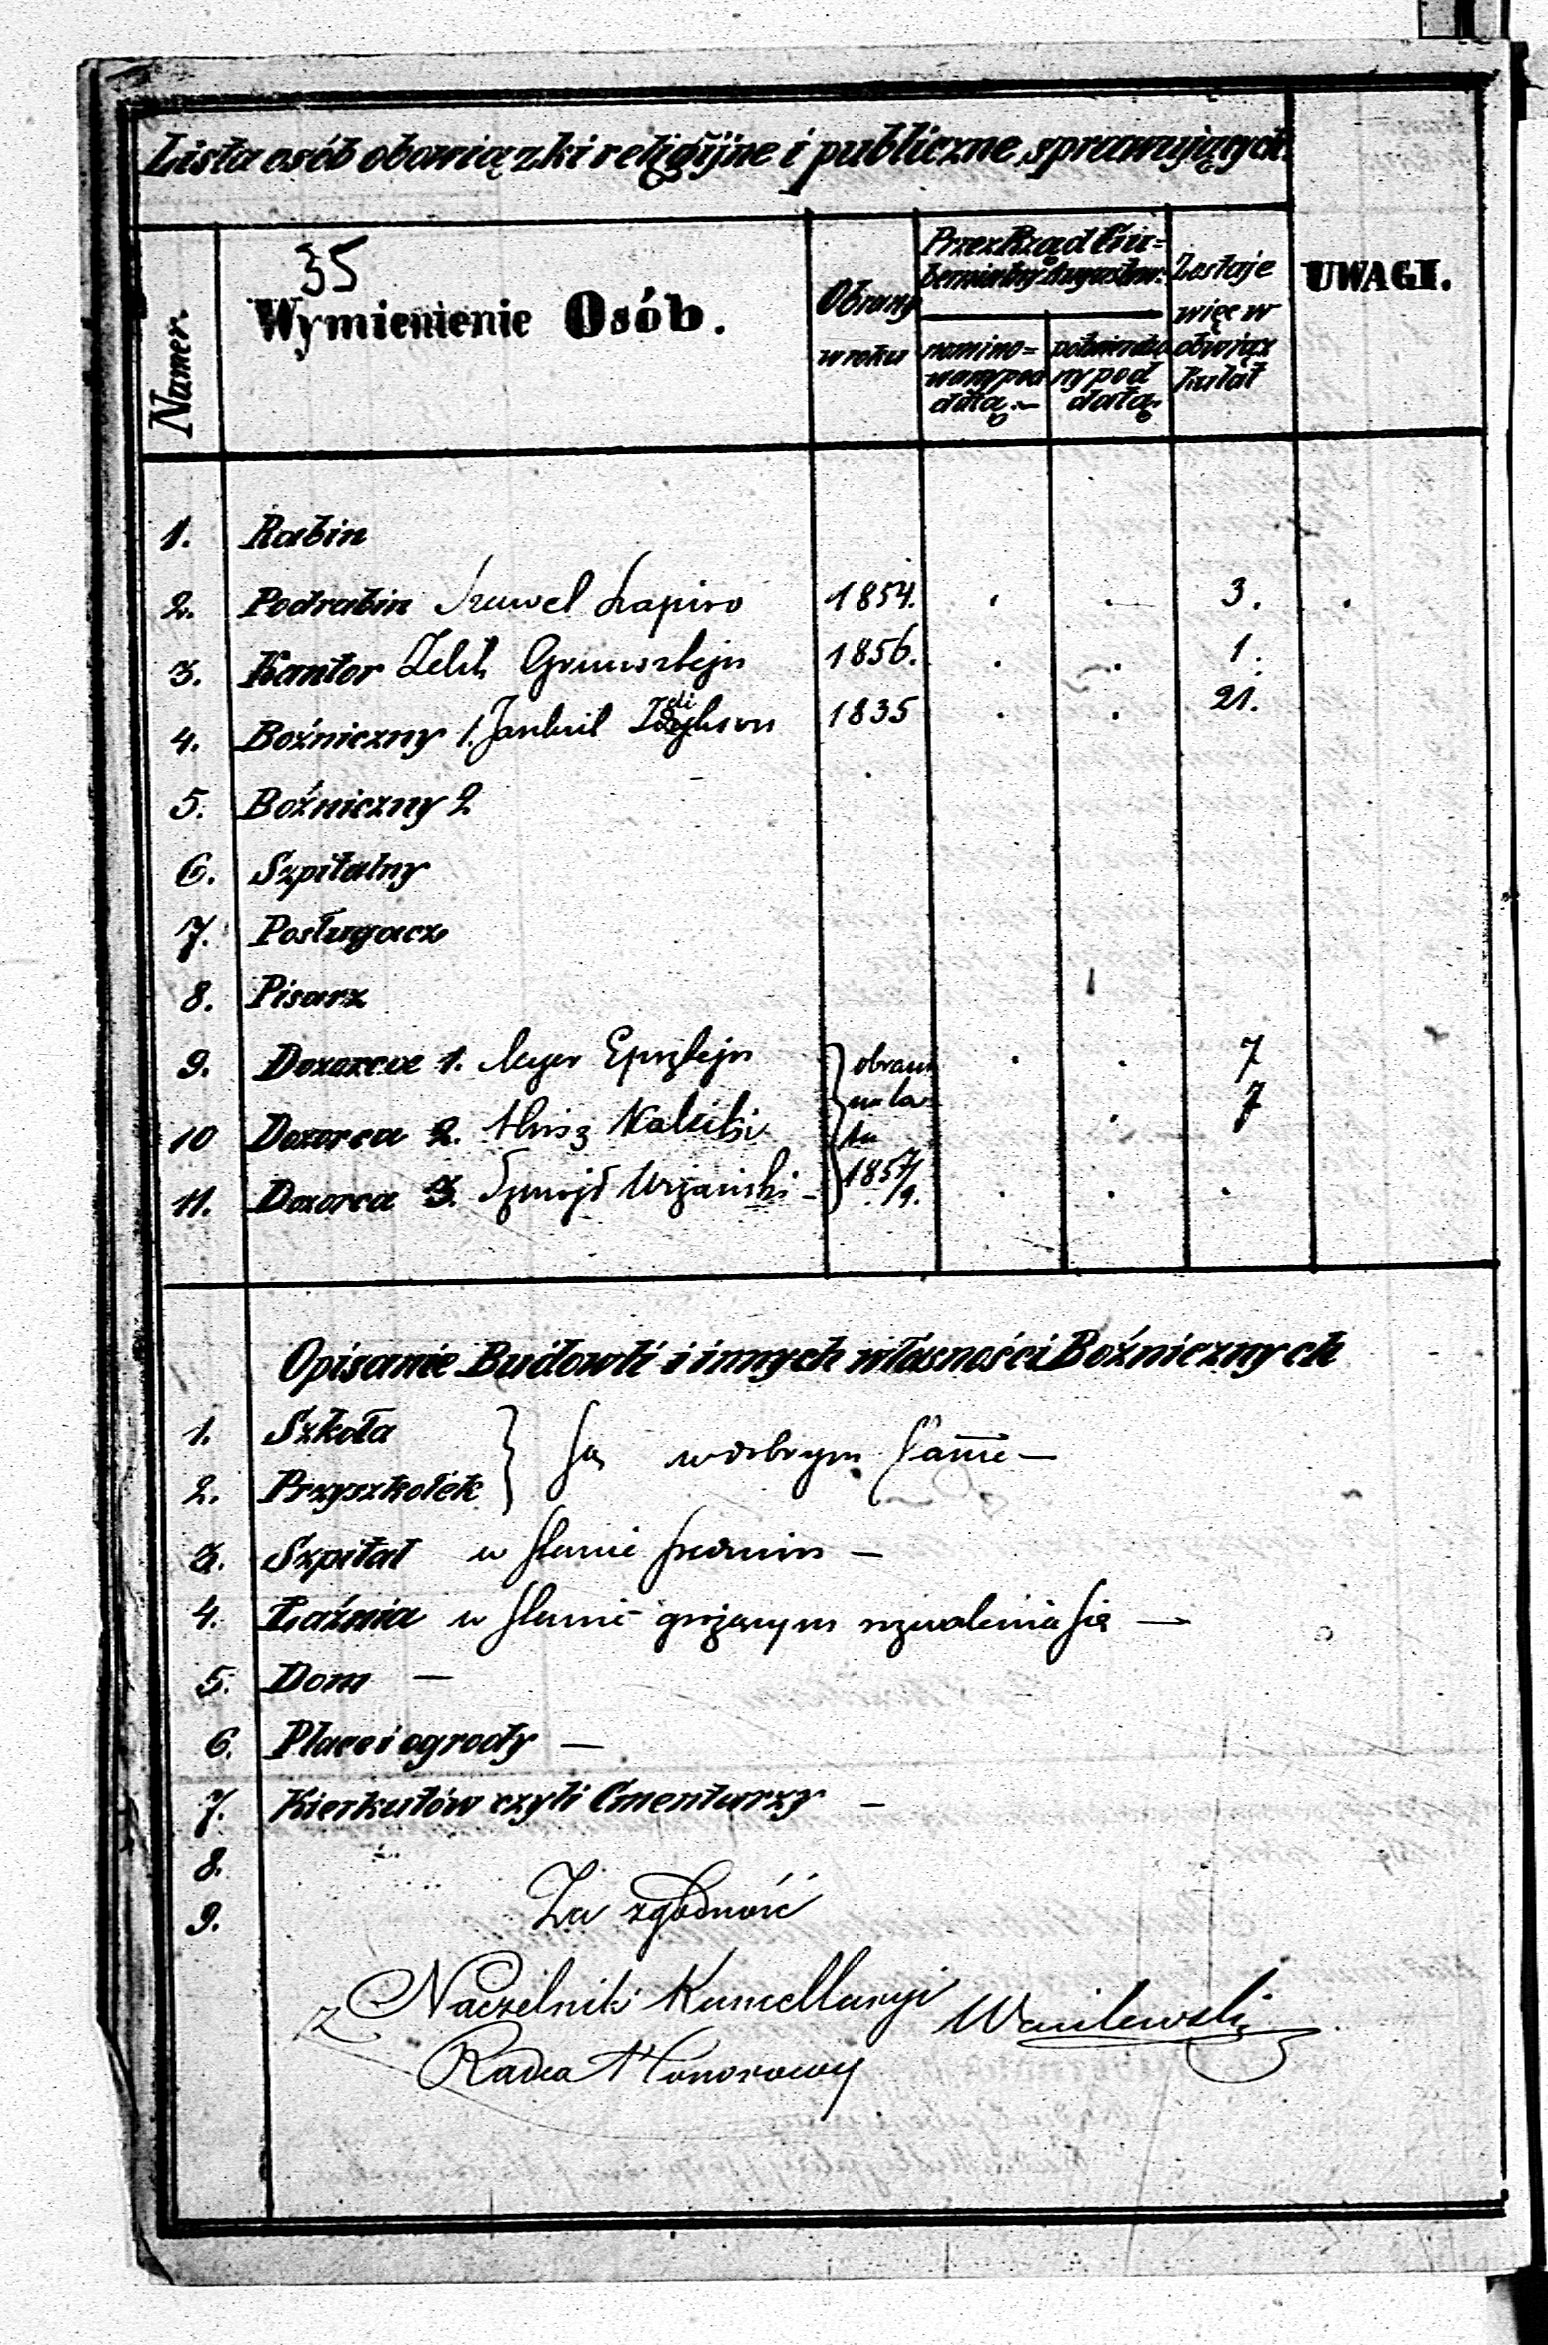 Lista osób obowiązki religijne i publiczne sprawujących
35
Numer
Wymienienie Osób.
Obrany
w roku
Przez Rząd Gu=
bernialny Augustow:
nomino=
wany pod
datą.
potwierdzo
ny pod
datą.
Zostaje
więc w
obowiąz
ku lat
UWAGI.
1. Rabin
2. Podrabin Szawel Szapiro 1854. 3.
3. Kantor Zelik Grunsztejn 1856. 1.
4. Bożniczny 1. Jankiel 1835 21.
5. Bożniczny 2
6. Szpitalny
7. Posługacz
8. Pisarz
9. Dozorca 1. Meyer Epsztejn obrani 7
na la-
10 Dozorca 2. 7
ta
11. Dozorca 3. Szmojł 1857/9.
Opisanie Budowli i innych własności Bożnicznych
1. Szkoła
są w dobrym stanie —
2. Przyszkołek
3. Szpital w stanie średnim —
4. Łaźnia w stanie grożącym rozwalenia się —
5. Dom —
6. Place i ogrody —
7. Kierkutów czyli Cmentarzy —
8.
9.
Za zgodność
Z Naczelnik Kancellaryi Wasilewski
Radca Honorowy